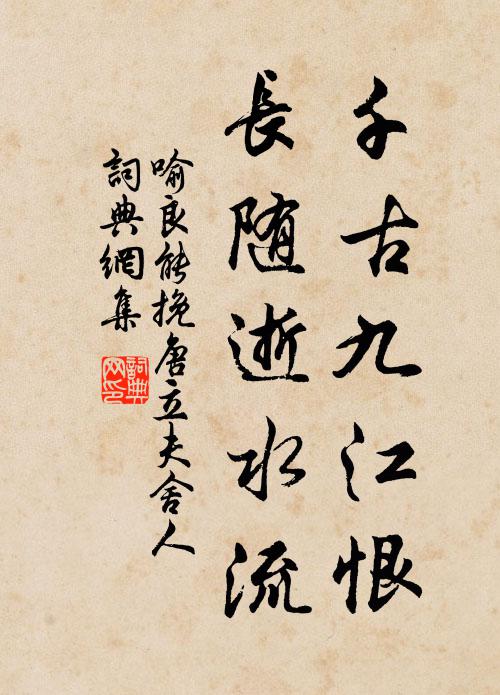 千古九江恨
長随逝水流
喻良能挽唐立夫舍人
詞典網集
詞典网印